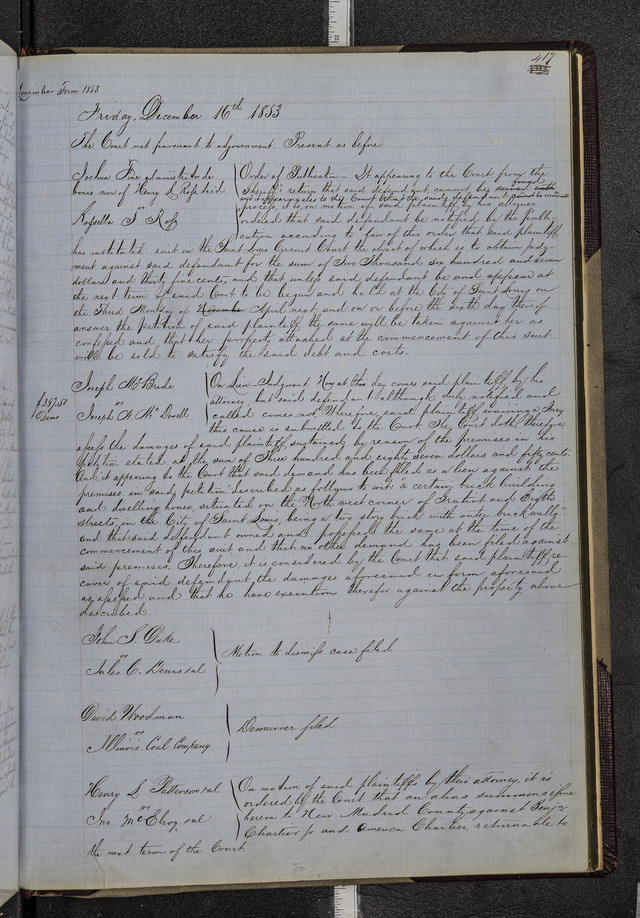 417
November Term 1853
Friday, December 16th 1853
The Court met pursuant to adjournment Present as before
Joshua Fine administrator de
bonis non of Henry L. Ross, dec'd
vs
Rossella S. Ross
Order of Publication – It appearing to the Court from the
Sheriff's return that said defendant cannot be
process, it is, on motion of said plaintiff by his attorney
ordered that said defendant be notified by the Publi-
cation according to law of this order that said plaintiff
has instituted suit in the Saint Louis Circuit Court the object of which is to obtain judg-
ment against said defendant for the sum of Two Thousand six hundred and seven
dollars and thirty five cents, and that unless said defendant be and appear at
the next term of said Court to be begun and held at the City of Saint Louis on
the Third Monday of November April next and on or before the sixth day thereof
answer the petition of said plaintiff the same will be taken against her as
confessed and that her property attached at the commencement of this suit
will be sold to satisfy the said debt and costs.
$387.50
Dams
Joseph McBride
vs
Joseph N. McDowell
On Lien. Judgment Now at this day comes said plaintiff by his
attorney, but said defendant although duly notified and
called comes not. Wherefore, said plaintiff waiving Jury
this cause is submitted to the Court. The Court doth therefore
assess the damages of said plaintiff sustained by reason of the premises in his
petition stated at the sum of Three hundred and eighty seven dollars and fifty cents.
And it appearing to the Court that said demand has been filed as a lien against the
premises in said petition described as follows to wit "a certain brick building
and dwelling house situated on the North west corner of Gratiot and Eighth
streets, in the City of Saint Louis, being a two story brick with outer brick walls"
and that said defendant owned and possessed the same at the time of the
commencement of this suit and that no other demand has been filed against
said premises. Therefore, it is considered by the Court that said plaintiff re-
cover of said defendant the damages aforesaid in form aforesaid
assessed and that he have execution therefor against the property above
described
John S. Dake
vs
Jules C. Denis et al
Motion to dismiss case filed
David Woodman
vs
Illinois Coal Company
Demurrer filed
Henry L. Patterson et al
vs
Jno McElroy et al
On motion of said plaintiffs by their attorney, it is
ordered by the Court that an alias summons issue
herein to New Madrid County against
Chartier jr and America Chartier, returnable to
the next term of the Court